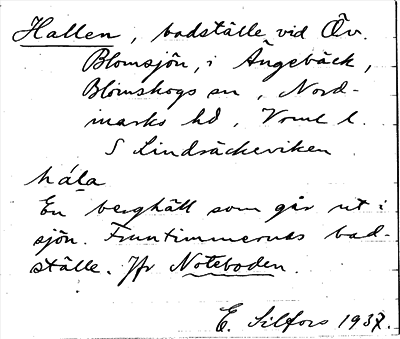 Hallen, badställe vid Öv.
Blomsjön, i Ängebäck,
Blomskogs sn, Nord-
marks hd, Vrml l.
S Lindsäckeviken
hála
En berghäll som går ut i
sjön. Fruntimmernas bad-
ställe. Jfr Noteboden.
E. Silfors 1937.